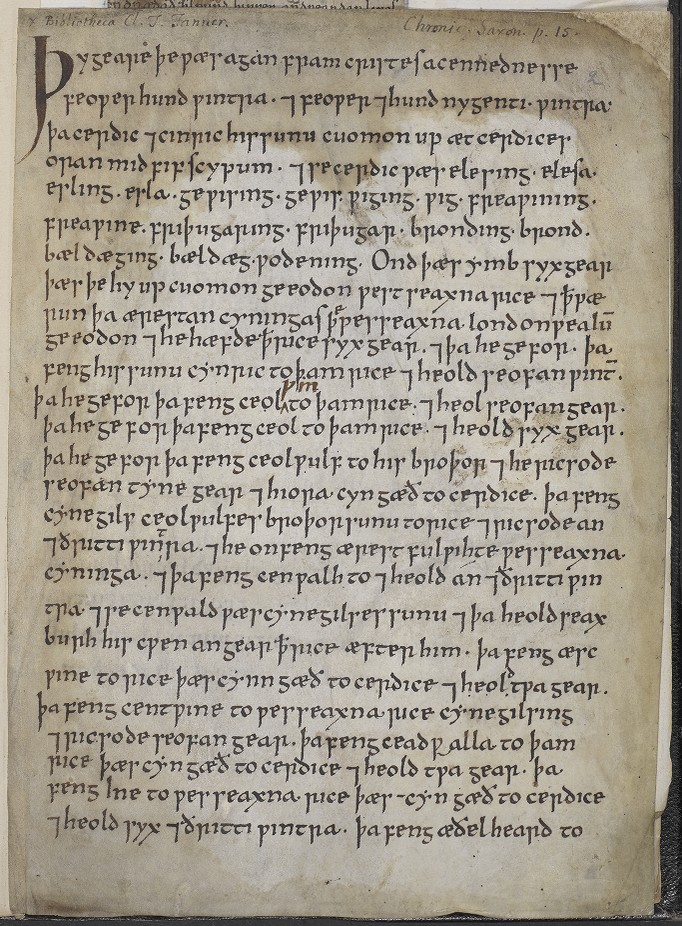 Bibliotheca Cl. T. Tanner. Chronic. Saxon. p. 15.
Þy geare þe ƿæs agan fram cristes acennednesse
feoƿer hund ƿintra · ⁊ feoƿer ⁊ hund nygenti · ƿintra
þa cerdic ⁊ cinric his sunu cuomon up æt cerdices
oran mid fif scypum · ⁊ se cerdic ƿæs elesing · elesa ·
esling · esla · geƿising · geƿis · ƿiging · ƿig · freaƿining ·
freaƿine · friþugaring · friþugar · bronding · brond ·
bældæging · bældæg · ƿodening · Ond þæs ymb syx gear
þæs þe hy up cuomon geeodon ƿest seaxna rice ⁊ þ̄ ƿæ
run þa ærestan cyningas þe ƿesseaxna lond on ƿealū
geeodon ⁊ he hæfde þ̄ rice syx gear · ⁊ þa he gefor · þa
feng his sunu cynric to þam rice ⁊ heold seofan ƿint̄ ·
þa he gefor þa feng ceol ƿlm to þam rice · ⁊ heol seofan gear ·
þa he gefor þa feng ceol to þam rice · ⁊ heold syx gear ·
þa he gefor þa feng ceolƿulf to his broþor ⁊ he ricsode
seofan tyne gear ⁊ hiora cyn gæð to cerdice · þa feng
cynegils ceolƿulfes broþor sunu to rice ⁊ ricsode an
⁊ ðritti ƿintra · ⁊ he onfeng ærest fulƿihte ƿesseaxna
cyninga · ⁊ þa feng cenƿalh to ⁊ heold an ⁊ ðritti ƿin
tra ⁊ se cenƿald ƿæs cynegilses sunu ⁊ þa heold seax
burh his cƿen an gear þ̄ rice æfter him · þa feng æsc
ƿine to rice þæs cynn gæð to cerdice ⁊ heold tƿa gear ·
þa feng centƿine to ƿesseaxna rice cynegilsing
⁊ ricsode seofan gear · þa feng ceadƿalla to þam
rice þæs cyn gæð to cerdice ⁊ heold tƿa gear · þa
feng Ine to ƿesseaxna rice þæs cyn gæð to cerdice
⁊ heold syx ⁊ ðritti ƿintra · þa feng æðelheard to